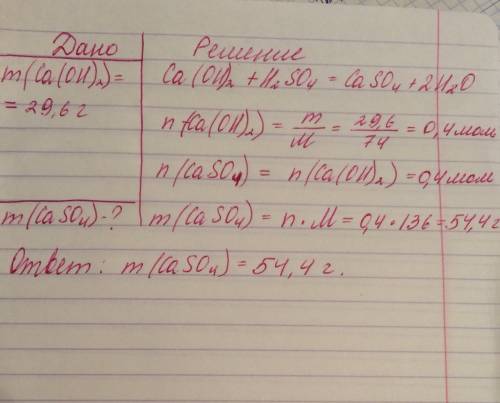 Дано
m(Ca(OH)2)=
= 29,6 г
m(CaSO4)-?
Решение
Ca(OH)2 + H2SO4 = CaSO4 + 2H2O
n(Ca(OH)2) = m/M = 29,6/74 = 0,4 мол
n(CaSO4) = n(Ca(OH)2) = 0,4 мол
m(CaSO4) = n·M = 0,4·136 = 54,4 г
Ответ: m(CaSO4) = 54,4 г.